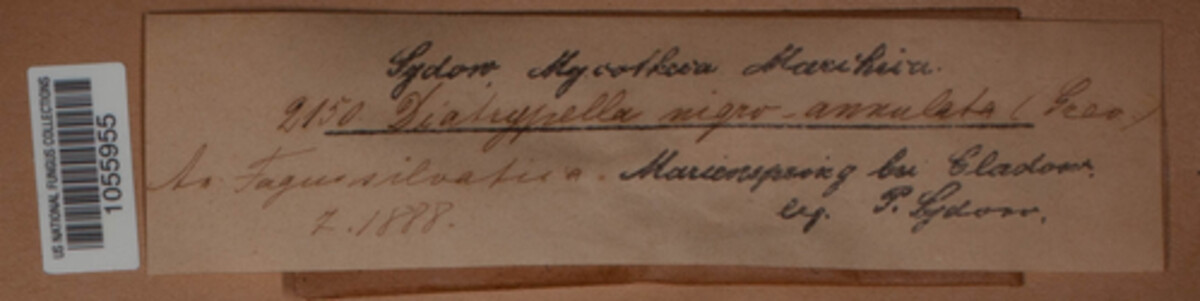 US NATIONAL FUNGUS COLLECTIONS
1055955
Sydow Mycotheca Marchica.
2150 Diatrypella nigro-annulata (Grev.)
An Fagus silvatica. Marienspring bei Cladow.
7.1888. leg. P. Sydow.